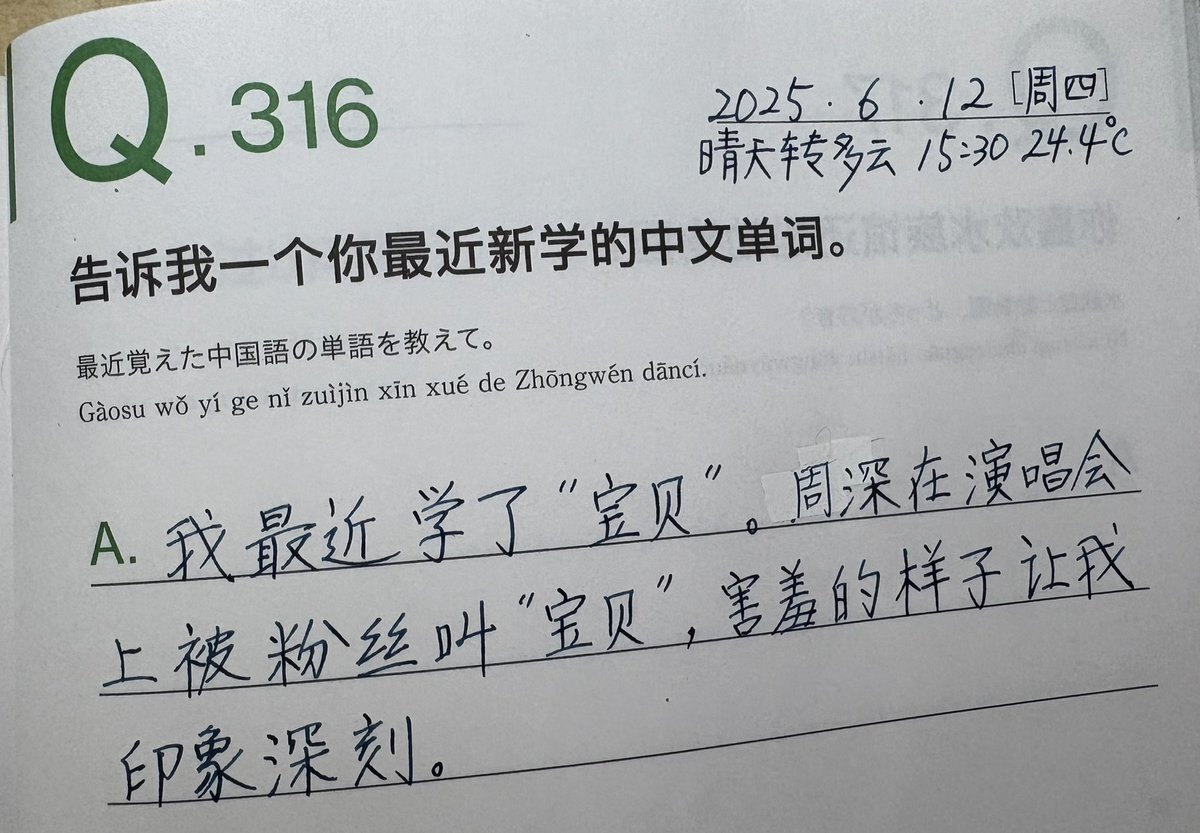 Q.316
2025.6.12[周四]
晴天转多云 15:30 24.4℃
告诉我一个你最近新学的中文单词。
最近覚えた中国語の単語を教えて。
Gàosu wǒ yí ge nǐ zuìjìn xīn xué de Zhōngwén dāncí.
A. 我最近学了“宝贝”。周深在演唱会
上被粉丝叫“宝贝”,害羞的样子让我
印象深刻。